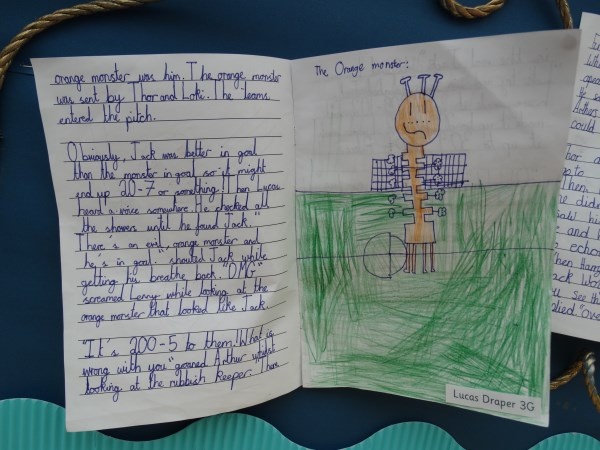 orange monster was him. The orange monster
was sent by Thor and Loki. The teams
entered the pitch.
Obviously, Jack was better in goal
than the monster in goal so it might
end up 20-7 or something. Then Lucas
heard a voice somewhere. He checked all
the showers until he found Jack. "
There's an evil orange monster and
he's in goal" shouted Jack while
getting his breathe back. "OMG"
screamed Lenny while looking at the
orange monster that looked like Jack.
"It's 200-5 to them. What is
wrong with you" groaned Arthur
looking at the rubbish keeper. Then
The Orange monster:
Lucas Draper 3G
could
Then
he didn
echo
Then Hang
ack was